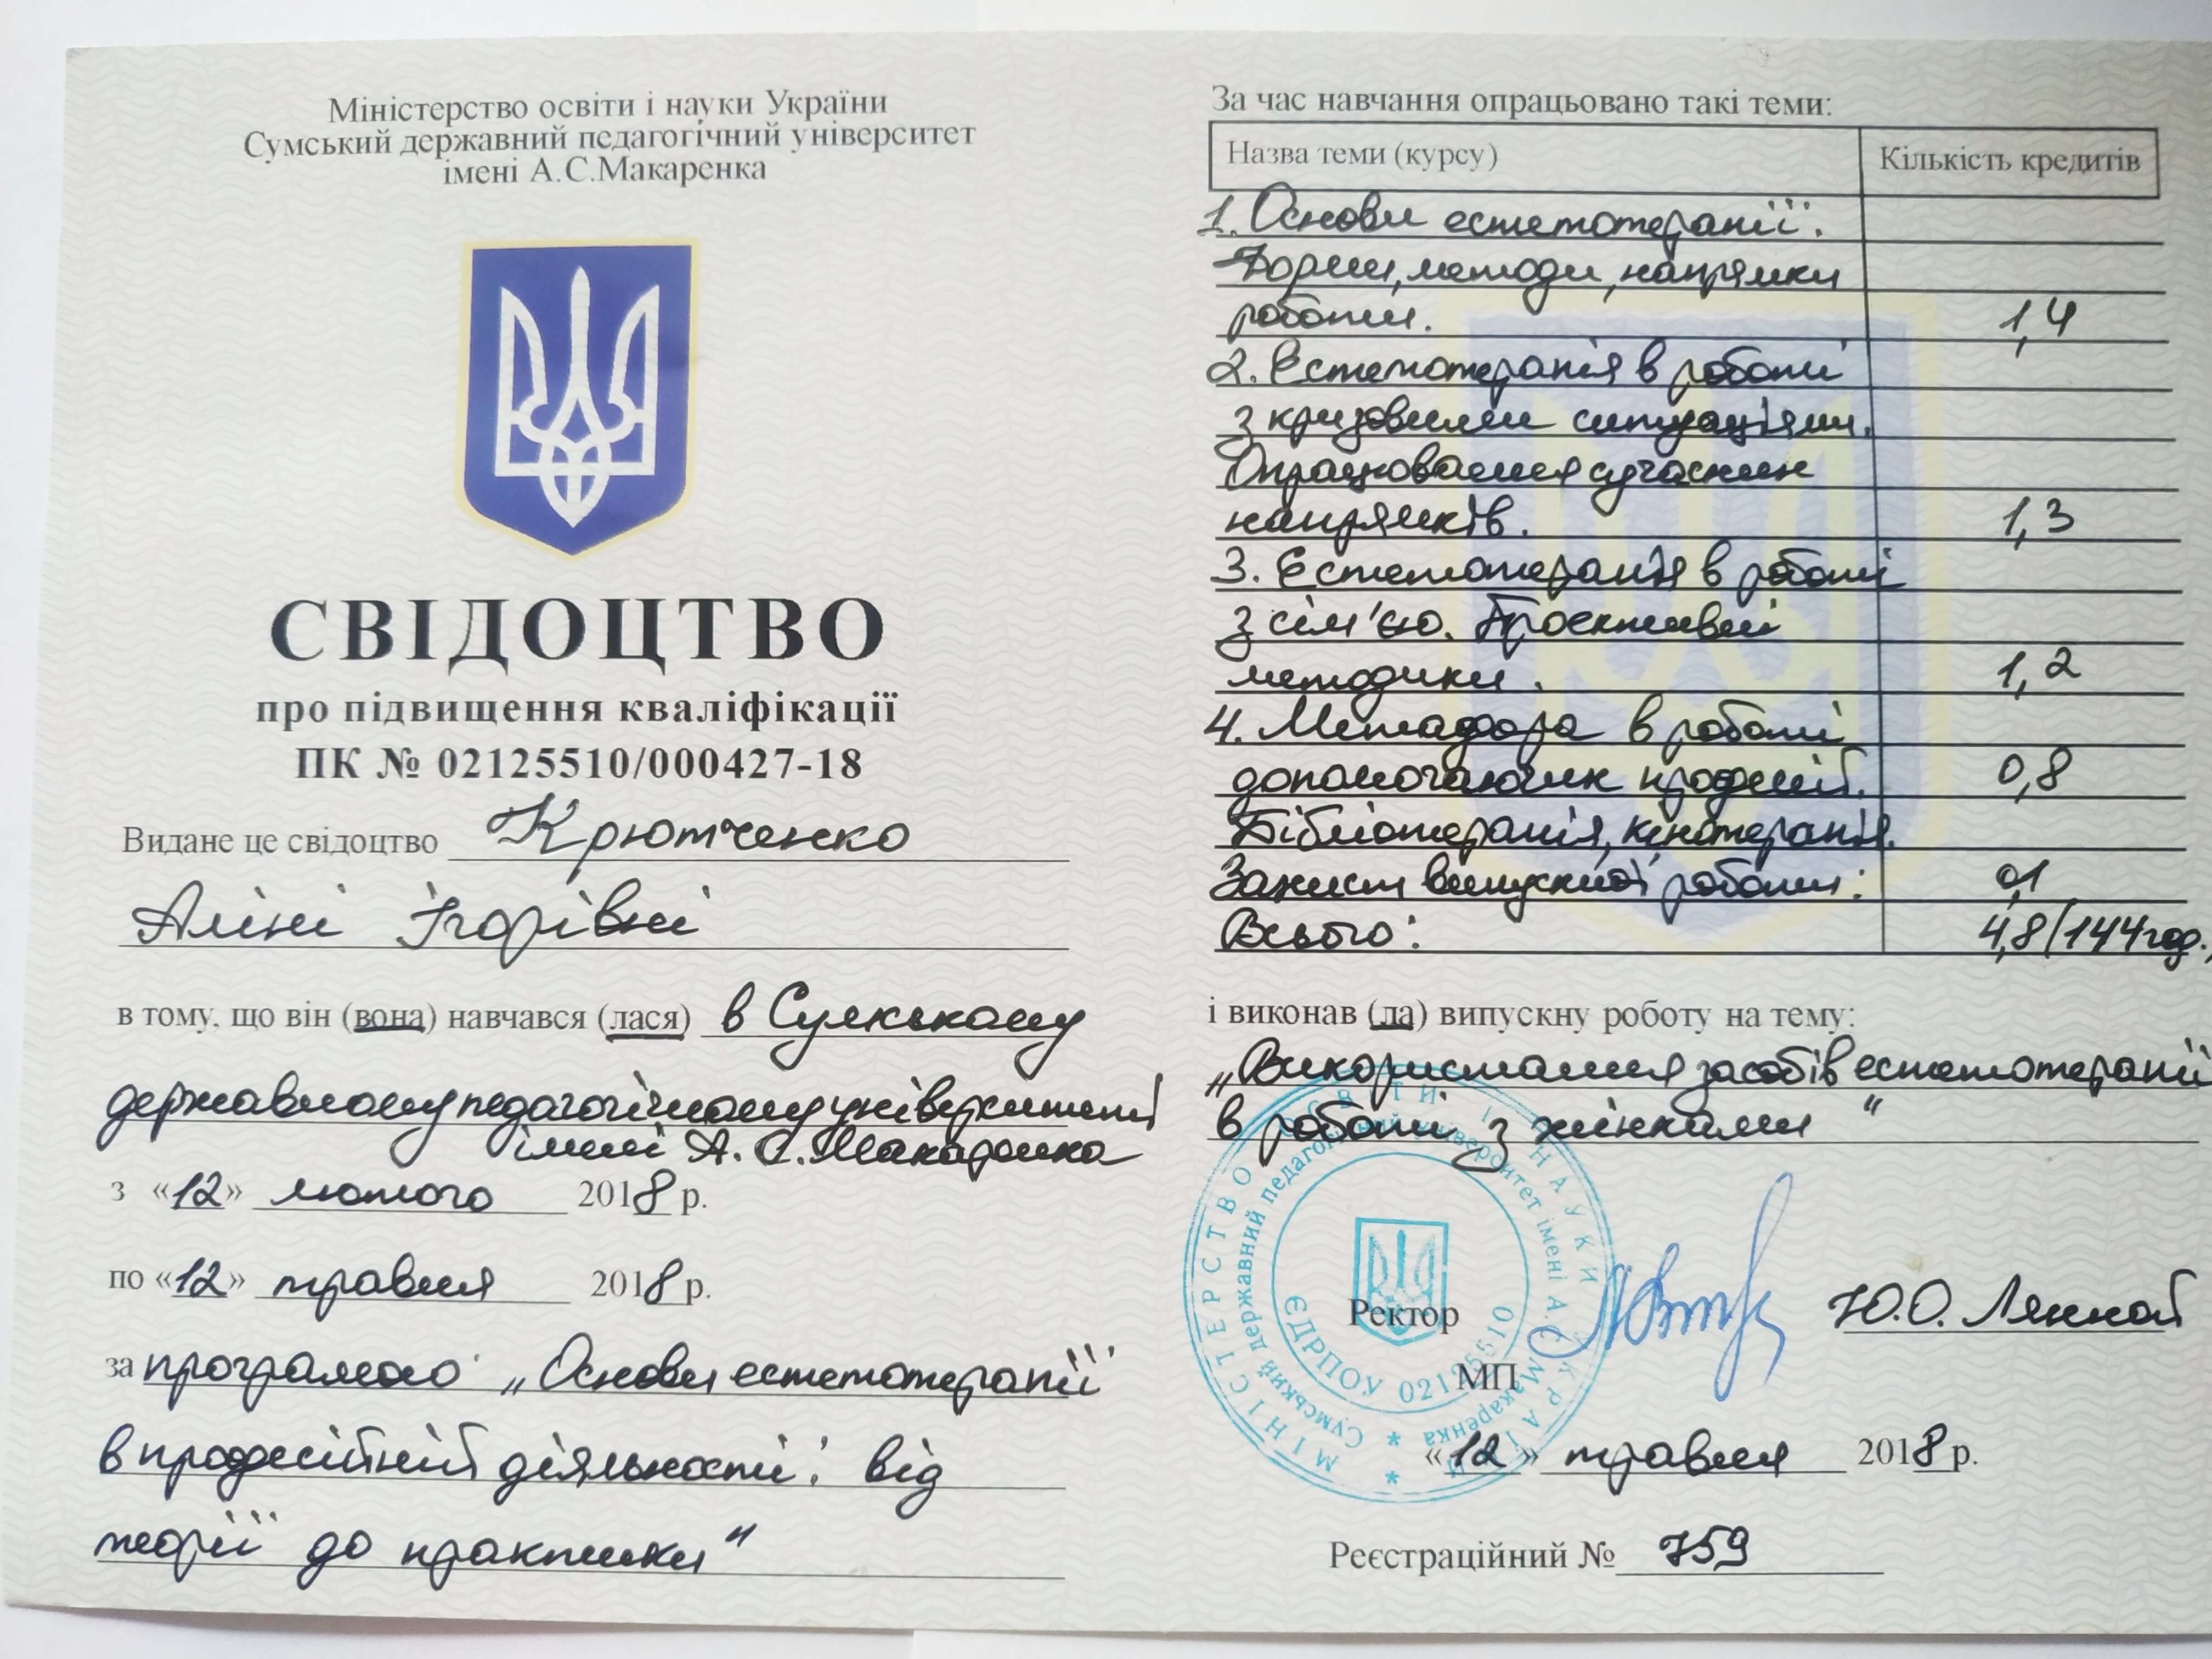 Міністерство освіти і науки України
Сумський державний педагогічний університет
імені А.С.Макаренка
СВІДОЦТВО
про підвищення кваліфікації
ПК № 02125510/000427-18
Видане це свідоцтво Крютченко
Аліні Ігорівні
в тому, що він (вона) навчався (лася) в Сумському
державному педагогічному університеті
імені А. С. Макаренка
з «12» лютого 2018 р.
по «12» травня 2018 р.
за програмою „Основи естетотерапії
в професійній діяльності: від
теорії до практики"
За час навчання опрацьовано такі теми:
Назва теми (курсу) Кількість кредитів
1. Основи естетотерапії.
Форми, методи, напрямки
роботи. 1,4
2. Естетотерапія в роботі
з кризовими ситуаціями.
Опрацювання сучасних
напрямків. 1,3
3. Естетотерапія в роботі
з сім'єю. Проективні
методики. 1,2
4. Метафора в роботі
допомогаючих професій. 0,8
Бібліотерапія, кінотерапія.
Захист випускної роботи: 0,1
Всього: 4,8/144 год.
і виконав (ла) випускну роботу на тему:
„Використання засобів естетотерапії
в роботі з жінками"
Ректор Ю.О. Лянной
МП
«12» травня 2018 р.
Реєстраційний № 759
МІНІСТЕРСТВО ОСВІТИ І НАУКИ УКРАЇНИ
Сумський державний педагогічний університет імені А.С. Макаренка
ЄДРПОУ 02125510